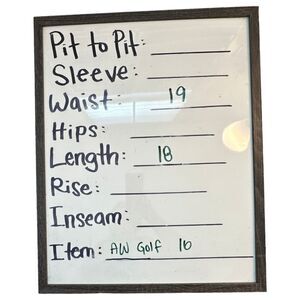 Pit to Pit:
Sleeve:
Waist: 19
Hips:
Length: 18
Rise:
Inseam:
Item: AW Golf 10